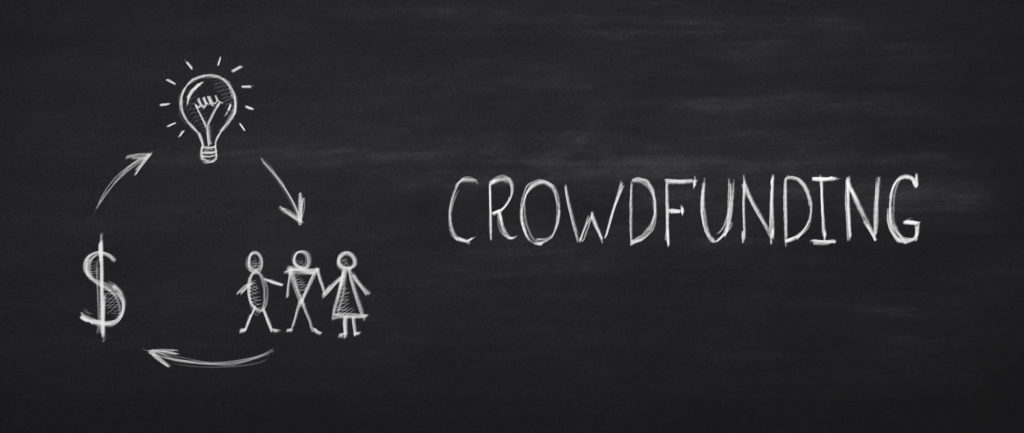 $
CROWDFUNDING